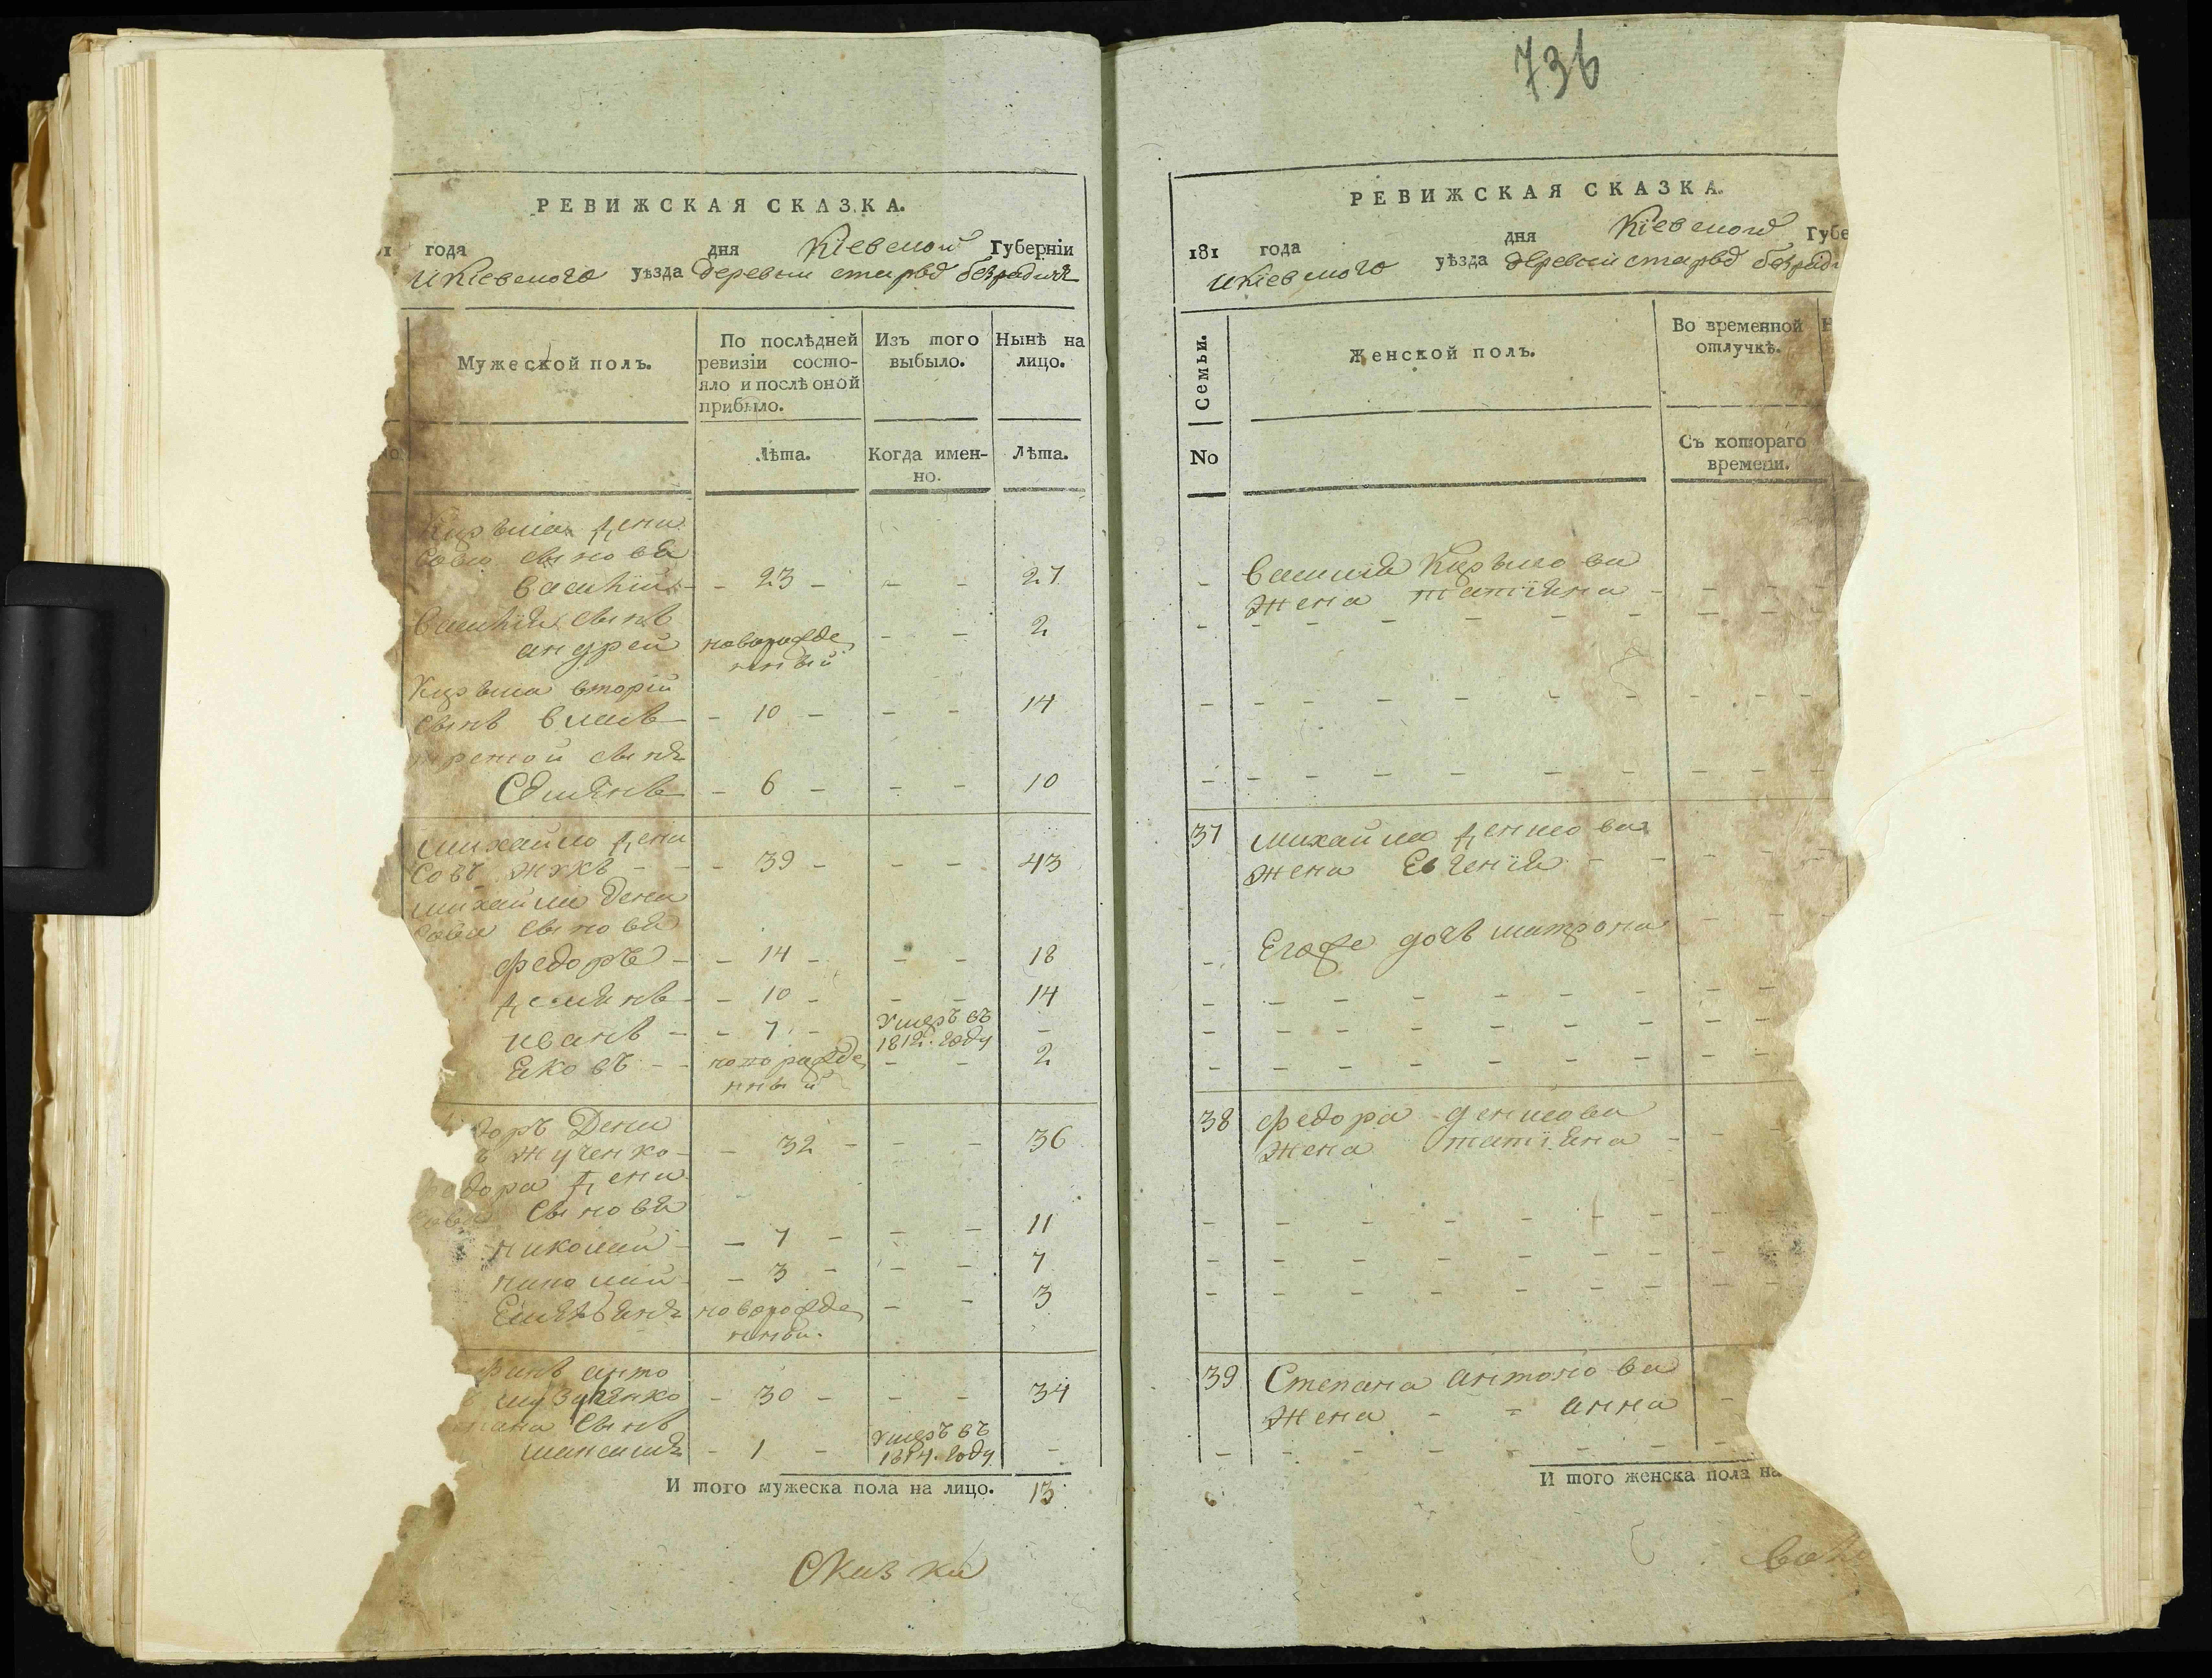 РЕВИЖСКАЯ СКАЗКА.
года дня Кіевской Губерніи
и Кіевского уѣзда деревни старой безрадичь
Мужеской полъ.
По послѣдней ревизіи состо-
яло и послѣ оной
прибыло.
Изъ того выбыло.
Нынѣ на лицо.
Лѣта.
Когда имен-
но.
Лѣта.
Кузьма Дени
сова сыновя
василій - 23 - - - 27
василія сынъ
андрей новорожде - - 2
нный
Кузьма вторій
сынъ власъ - 10 - - - 14
третой сынъ
- 6 - - - 10
михайло Дени
совъ жукъ - - 39 - - - 43
михайла Дени
сова сыновя
федоръ - - 14 - - - 18
Демянъ - - 10 - - - 14
иванъ - - 7 - умеръ въ -
1812. году
Яковъ - - новорожде - - 2
нный
доръ Дени
ъ жученко - - 32 - - - 36
федора Дени
сова сыновя
николай - 7 - - - 11
николай - 3 - - - 7
Емельянъ новорожде - - 3
нный
фанъ анто
- 30 - - - 34
пана сынъ
максимъ - 1 - умеръ въ -
1814. году
И того мужеска пола на лицо. 13
Сказка
736
РЕВИЖСКАЯ СКАЗКА.
181 года дня Кіевской Губе
и Кіевского уѣзда деревни старой безради
Семьи.
Женской полъ.
Во временной
отлучкѣ.
No
Съ котораго
времени.
- василія Кузмова
жена татіяна -
37 михайло Денисова
жена Евгенія -
- Егоже дочь матрона
38 федора денисова
жена татіяна -
39 Степана антонова
жена - - анна -
И того женска пола на